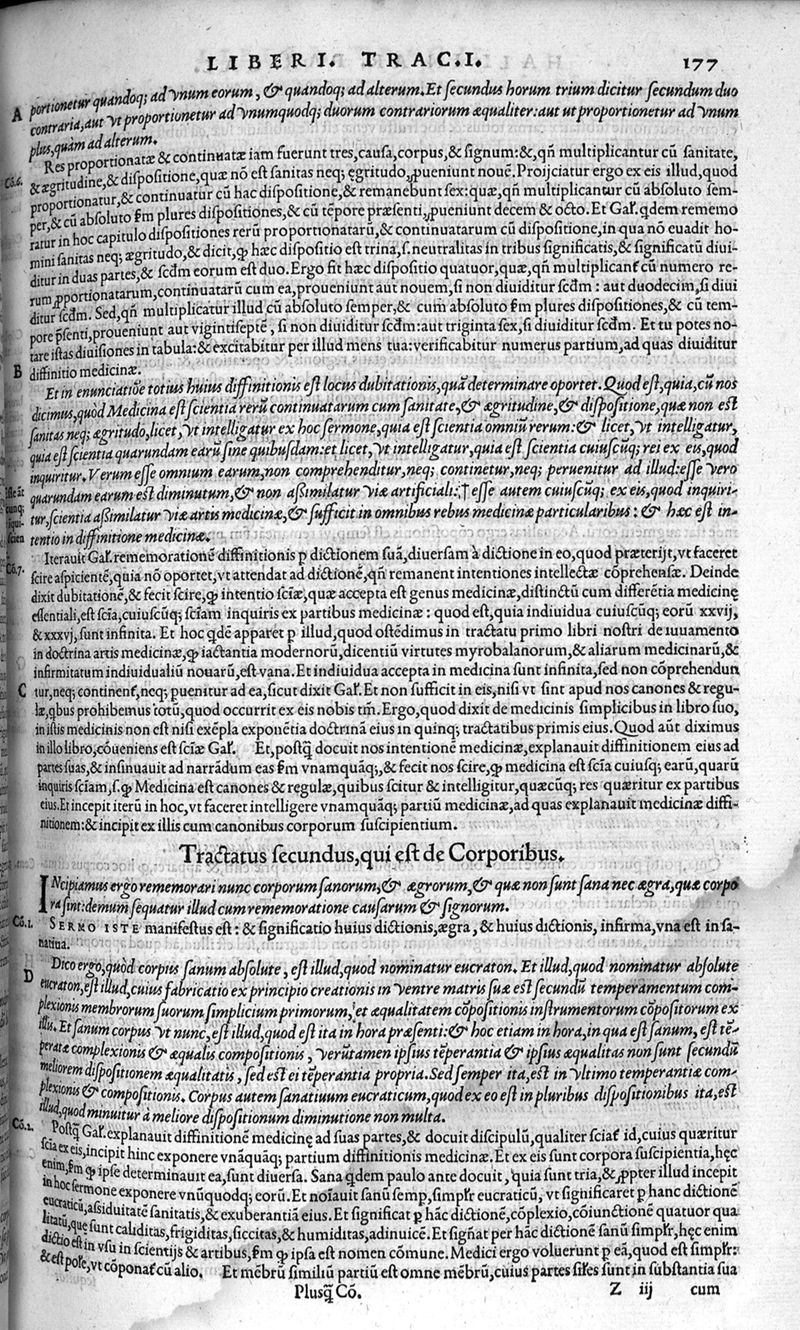 LIBERI. TRAC.I. 177
portionetur quandoq; ad vnum eorum, & quandoq; ad alterum. Et secundus horum trium dicitur secundum duo
A contraria, aut vt proportionetur ad vnumquodq; duorum contrariorum æqualiter: aut ut proportionetur ad vnum
plus, quàm ad alterum.
Res proportionatæ & continuatæ iam fuerunt tres, causa, corpus, & signum: &, qñ multiplicantur cũ sanitate,
Cõ.6. & ægritudine, & dispositione, quæ nõ est sanitas neq; ęgritudo, ꝓueniunt nouẽ. Proijciatur ergo ex eis illud, quod
proportionatur, & continuatur cũ hac dispositione, & remanebunt sex: quæ, qñ multiplicantur cũ absoluto sem-
per, & cũ absoluto ẜm plures dispositiones, & cũ tẽpore præsenti, ꝓueniunt decem & octo. Et Gal. qdem rememo
ratur in hoc capitulo dispositiones rerũ proportionatarũ, & continuatarum cũ dispositione, in qua nõ euadit ho-
mini sanitas neq; ægritudo, & dicit, ꝙ hæc dispositio est trina, s. neutralitas in tribus significatis, & significatũ diui-
ditur in duas partes, & scđm eorum est duo. Ergo fit hæc dispositio quatuor, quæ, qñ multiplicant cũ numero re-
rum ꝓportionatarum, continuatarũ cum ea, proueniunt aut nouem, si non diuiditur scđm: aut duodecim, si diui
ditur scđm. Sed, qñ multiplicatur illud cũ absoluto semper, & cum absoluto ẜm plures dispositiones, & cũ tem-
pore pñsenti, proueniunt aut vigintiseptẽ, si non diuiditur scđm: aut triginta sex, si diuiditur scđm. Et tu potes no-
tare istas diuisiones in tabula: & excitabitur per illud mens tua: verificabitur numerus partium, ad quas diuiditur
B diffinitio medicinæ.
Et in enunciatiõe totius huius diffinitionis est locus dubitationis, quã determinare oportet. Quod est, quia, cũ nos
dicimus, quòd Medicina est scientia rerũ continuatarum cum sanitate, & ægritudine, & dispositione, quæ non est
sanitas neq; ægritudo, licet, vt intelligatur ex hoc sermone, quia est scientia omniũ rerum: & licet, vt intelligatur,
quia est scientia quarundam earũ sine quibusdam: et licet, vt intelligatur, quia est scientia cuiuscũq; rei ex eis, quod
inquiritur. Verum esse omnium earum, non comprehenditur, neq; continetur, neq; peruenitur ad illud: esse vero
quarundam earum est diminutum, & non assimilatur viæ artificiali: † esse autem cuiuscũq; ex eis, quod inquiri-
tur, scientia assimilatur viæ artis medicinæ, & sufficit in omnibus rebus medicinæ particularibus: & hæc est in-
tentio in diffinitione medicinæ.
Iterauit Gal. rememorationẽ diffinitionis p dictionem suã, diuersam à dictione in eo, quod præterijt, vt faceret
Cõ.7. scire aspicientẽ, quia nõ oportet, vt attendat ad dictionẽ, qñ remanent intentiones intellectæ cõprehensæ. Deinde
dixit dubitationẽ, & fecit scire, ꝙ intentio sciæ, quæ accepta est genus medicinæ, distinctũ cum differẽtia medicinę
essentiali, est scia, cuiuscũq; sciam inquiris ex partibus medicinæ: quod est, quia indiuidua cuiuscũq; eorũ xxvij,
& xxxvj, sunt infinita. Et hoc qdẽ apparet p illud, quod ostẽdimus in tractatu primo libri nostri de iuuamento
in doctrina artis medicinæ, ꝙ iactantia modernorũ, dicentiũ virtutes myrobalanorum, & aliarum medicinarũ, &
infirmitatum indiuidualiũ nouarũ, est vana. Et indiuidua accepta in medicina sunt infinita, sed non cõprehendun
C tur, neq; continent, neq; ꝑuenitur ad ea, sicut dixit Gal. Et non sufficit in eis, nisi vt sint apud nos canones & regu-
læ, qbus prohibemus totũ, quod occurrit ex eis nobis tm̃. Ergo, quod dixit de medicinis simplicibus in libro suo,
in istis medicinis non est nisi exẽpla exponẽtia doctrinã eius in quinq; tractatibus primis eius. Quod aũt diximus
in illo libro, cõueniens est sciæ Gal. Et, postq̃ docuit nos intentionẽ medicinæ, explanauit diffinitionem eius ad
partes suas, & insinuauit ad narrãdum eas ẜm vnamquãq;, & fecit nos scire, ꝙ medicina est scia cuiusq; earũ, quarũ
inquiris sciam, s. ꝙ Medicina est canones & regulæ, quibus scitur & intelligitur, quæcũq; res quæritur ex partibus
eius. Et incepit iterũ in hoc, vt faceret intelligere vnamquãq; partiũ medicinæ, ad quas explanauit medicinæ diffi-
nitionem: & incipit ex illis cum canonibus corporum suscipientium.
Tractatus secundus, qui est de Corporibus.
INcipiamus ergo rememorari nunc corporum sanorum, & ægrorum, & quæ non sunt sana nec ægra, quæ corpo
ra sint: demum sequatur illud cum rememoratione causarum & signorum.
Cõ.1. SERMO ISTE manifestus est: & significatio huius dictionis, ægra, & huius dictionis, infirma, vna est in sa-
natiua.
D Dico ergo, quòd corpus sanum absolute, est illud, quod nominatur eucraton. Et illud, quod nominatur absolute
eucraton, est illud, cuius fabricatio ex principio creationis in ventre matris suæ est secundũ temperamentum com-
plexionis membrorum suorum similicium primorum, et æqualitatem cõpositionis instrumentorum cõpositorum ex
illis. Et sanum corpus vt nunc, est illud, quod est ita in hora præsenti: & hoc etiam in hora, in qua est sanum, est tẽ-
peratæ complexionis & æqualis compositionis, verũtamen ipsius tẽperantia & ipsius æqualitas non sunt secundũ
meliorem dispositionem æqualitatis, sed est ei tẽperantia propria. Sed semper ita, est in vltimo temperantiæ com-
plexionis & compositionis. Corpus autem sanatiuum eucraticum, quod ex eo est in pluribus dispositionibus ita, est
illud, quod minuitur à meliore dispositionum diminutione non multa.
Cõ.2. Postq̃ Gal. explanauit diffinitionẽ medicinę ad suas partes, & docuit discipulũ, qualiter sciat id, cuius quæritur
scia ex eis, incipit hinc exponere vnãquãq; partium diffinitionis medicinæ. Et ex eis sunt corpora suscipientia, hęc
enim, ẜm ꝙ ipse determinauit ea, sunt diuersa. Sana qdem paulo ante docuit, quia sunt tria, & ꝓpter illud incepit
in hoc sermone exponere vnũquodq; eorũ. Et noiauit sanũ semp, simplr eucraticũ, vt significaret p hanc dictionẽ
eucraticũ, assiduitatẽ sanitatis, & exuberantiã eius. Et significat p hãc dictionẽ, cõplexio, cõiunctionẽ quatuor qua
litatũ, que sunt caliditas, frigiditas, siccitas, & humiditas, adinuicẽ. Et signat per hãc dictionẽ sanũ simplr, hęc enim
dictio est in vsu in scientijs & artibus, ẜm ꝙ ipsa est nomen cõmune. Medici ergo voluerunt p eã, quod est simplr:
& est pole, vt cõponat cũ alio. Et mẽbrũ similiũ partiũ est omne mẽbrũ, cuius partes siles sunt in substantia sua
Plusq̃ Cõ. Z iij cum